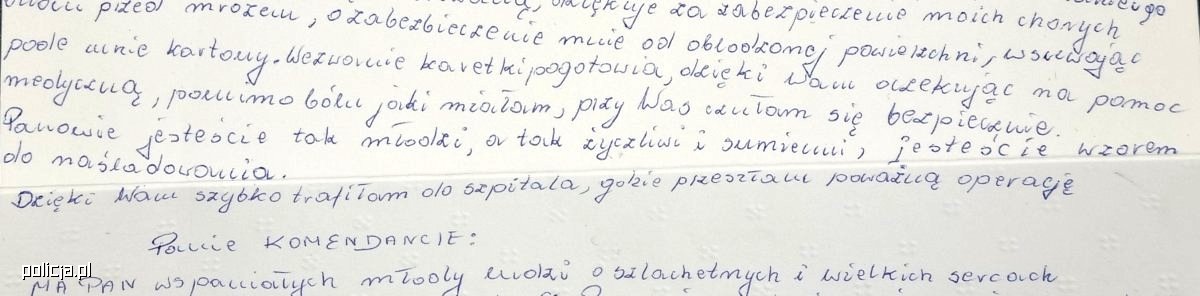 przed mrozem, dziękuję za zabezpieczenie moich chorych
, a zabezbieczenie mnie od oblodzonej powierzchni, wsuwając
pode mnie kartony. Wezwanie karetki pogotowia, dzięki Wam oczekując na pomoc
medyczną, pomimo bólu jaki miałam, przy Was czułam się bezpiecznie.
Panowie jesteście tak młodzi, a tak życzliwi i sumienni, jesteście wzorem
do naśladowania.
Dzięki Wam szybko trafiłam do szpitala, gdzie przeszłam poważną operację
Panie KOMENDANCIE:
MA PAN wspaniałych młody ludzi o szlachetnych i wielkich sercach
policja.pl